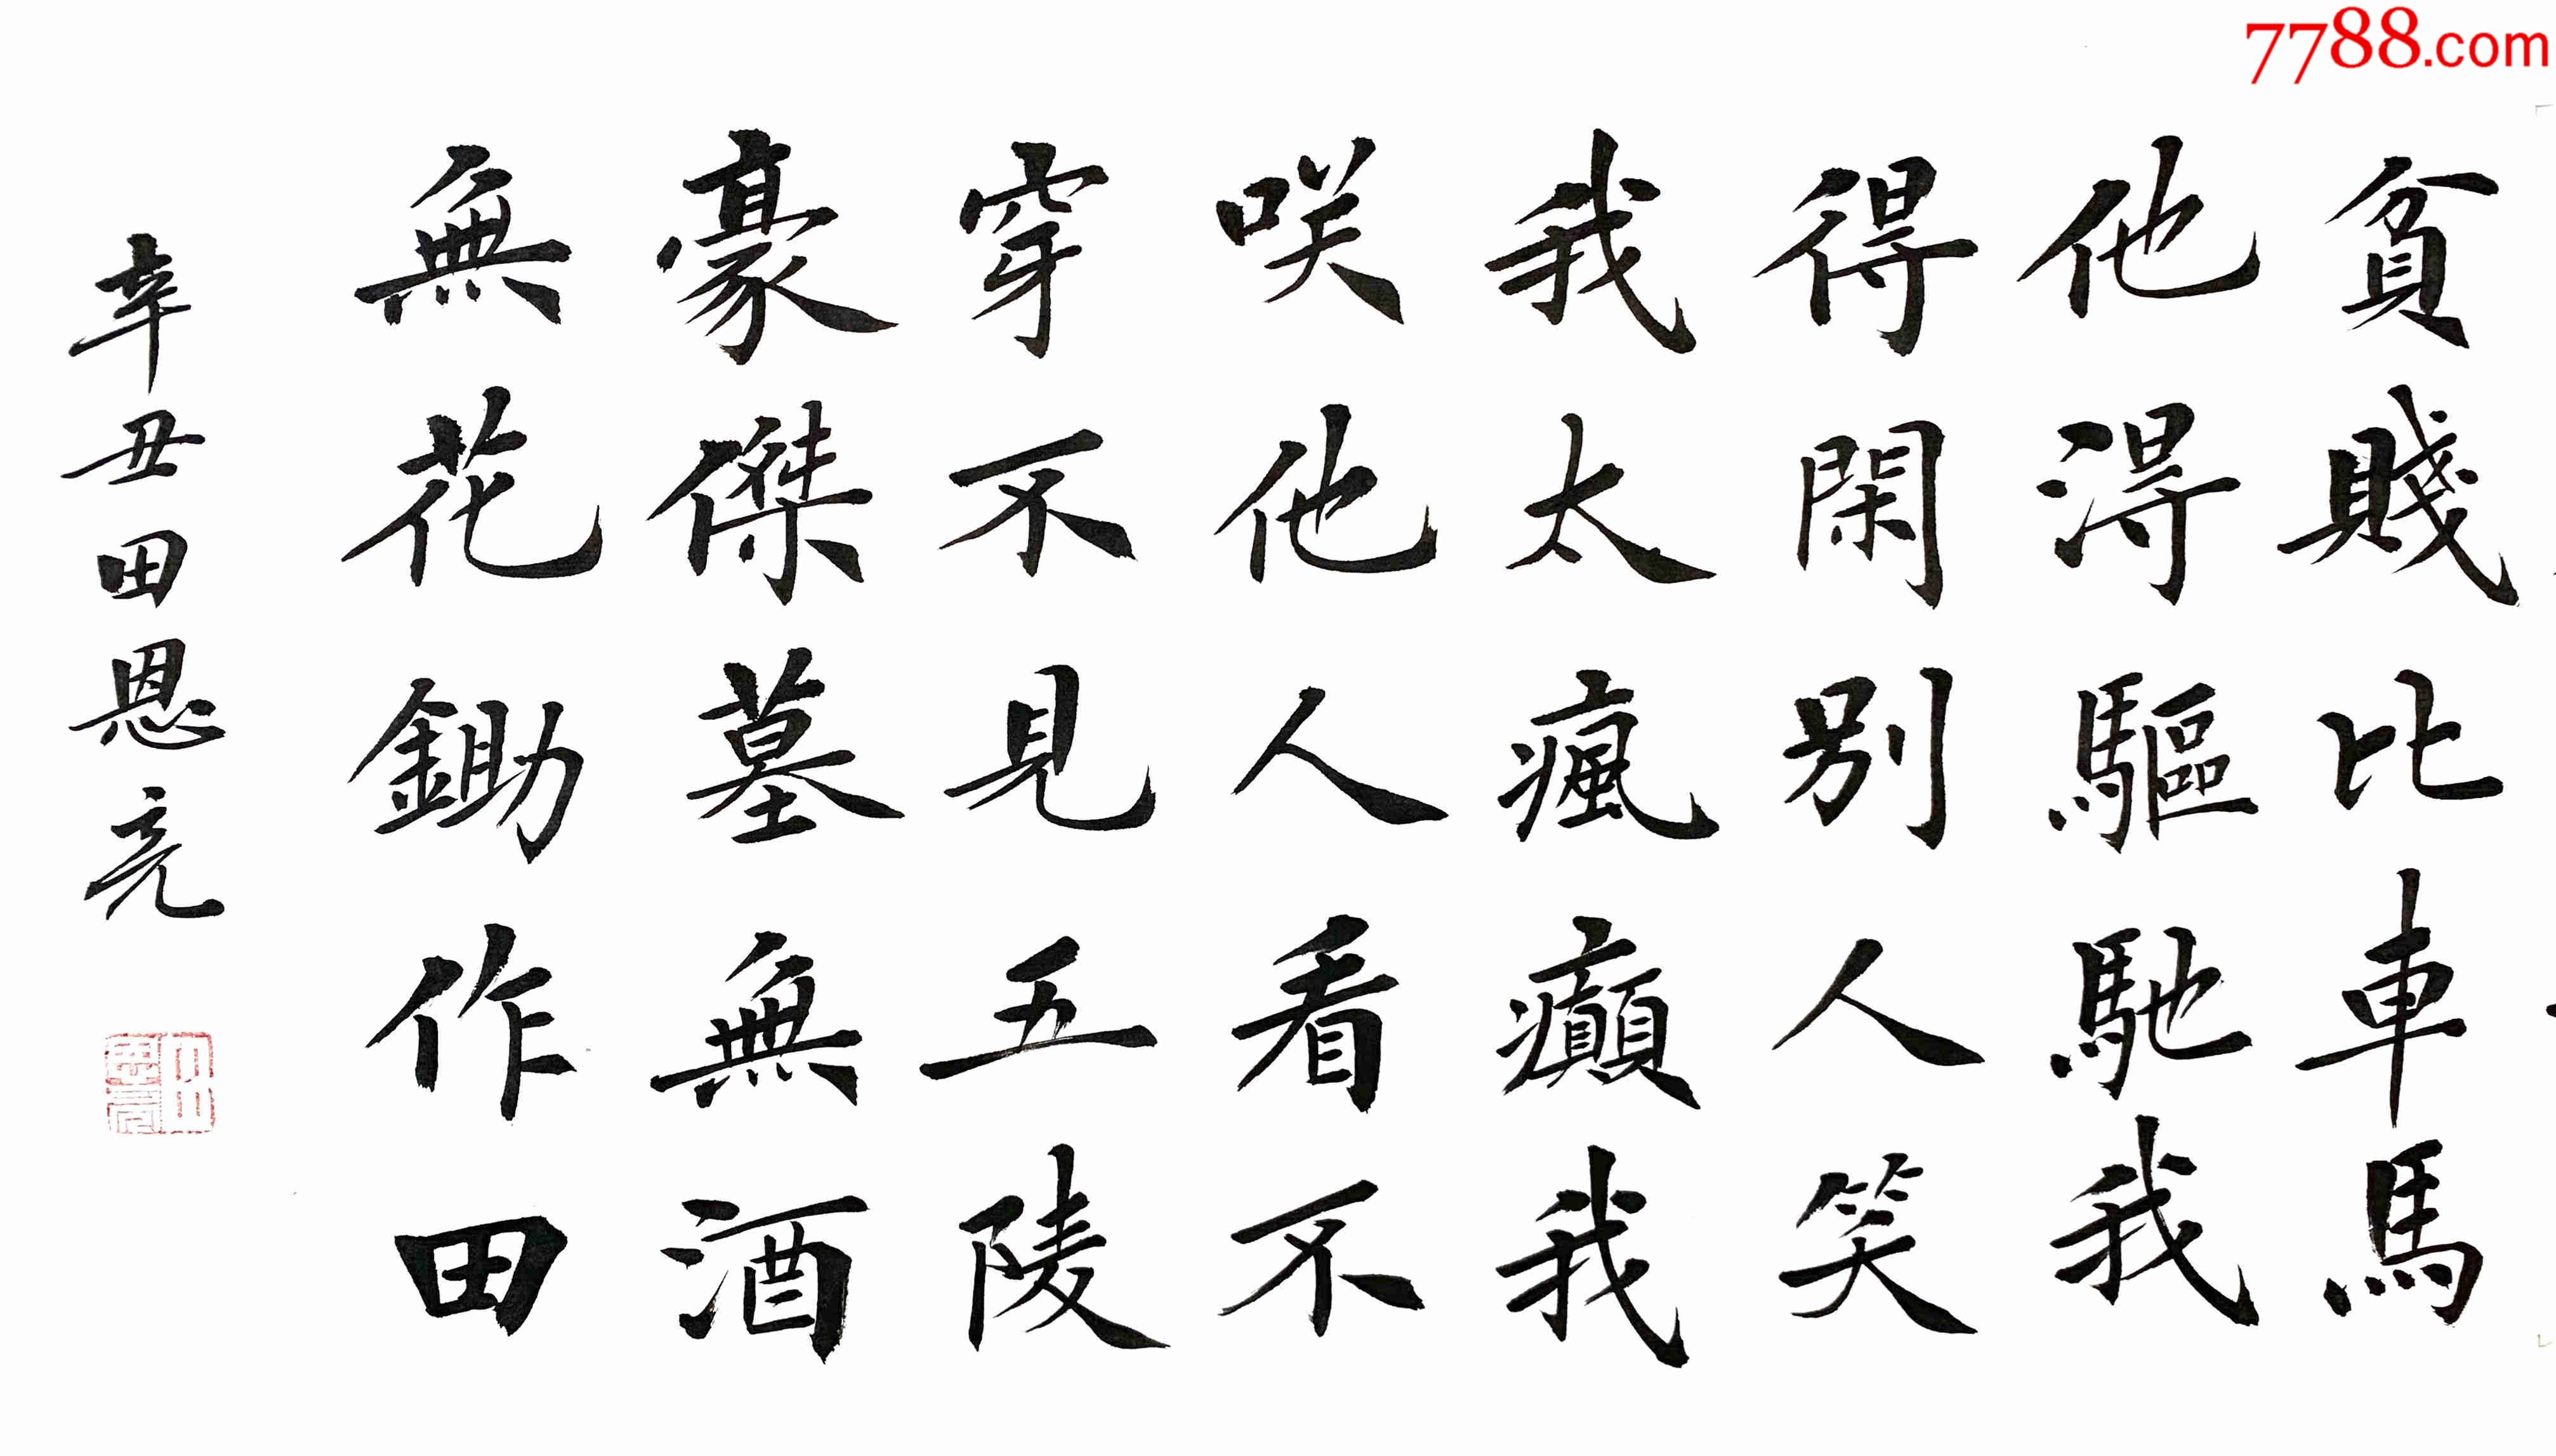 貧賤比車馬
他淂驅馳我
得閑別人笑
我太瘋癲我
咲他人看不
穿不見五陵
豪傑墓無酒
無花鋤作田
辛丑田恩亮
7788.com